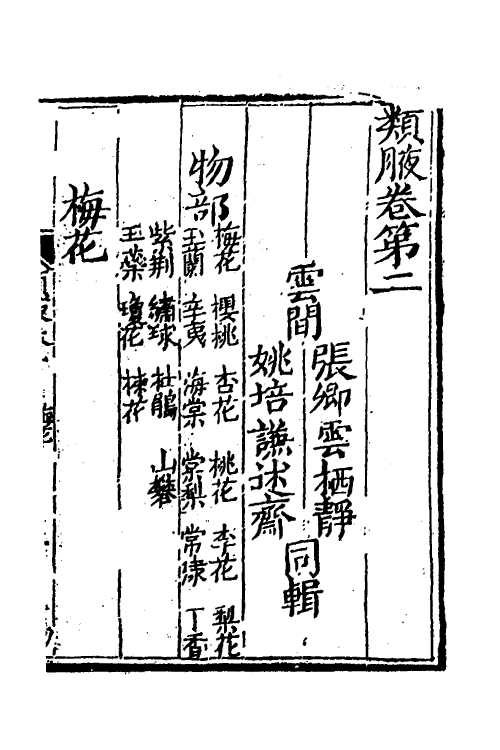 類腋卷第二
張卿雲栖靜
雲間
同輯
姚培謙述齋
物部
梅花 櫻桃 杏花 桃花 李花 梨花
玉蘭 辛夷 海棠 棠梨 常棣 丁香
紫荆 繡球 杜鵑 山礬
玉蘂 瓊花 楝花
梅花